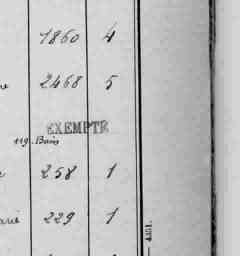 1860 4
2468 5
EXEMPTÉ
119. Bain
258 1
229 1
4401.